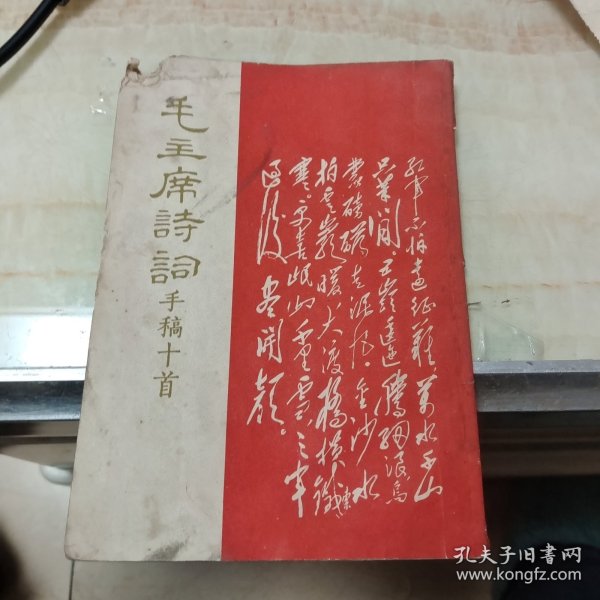 毛主席詩詞
手稿十首
红军不怕遠征難。萬水千山
只等闲。五嶺逶迤騰細浪烏
蒙磅礴走泥丸。金沙水
拍雲巖暖大渡橋横鐵索
寒。更喜岷山千里雪三軍
過後盡開顏。
孔夫子旧书网
www.kongfz.com